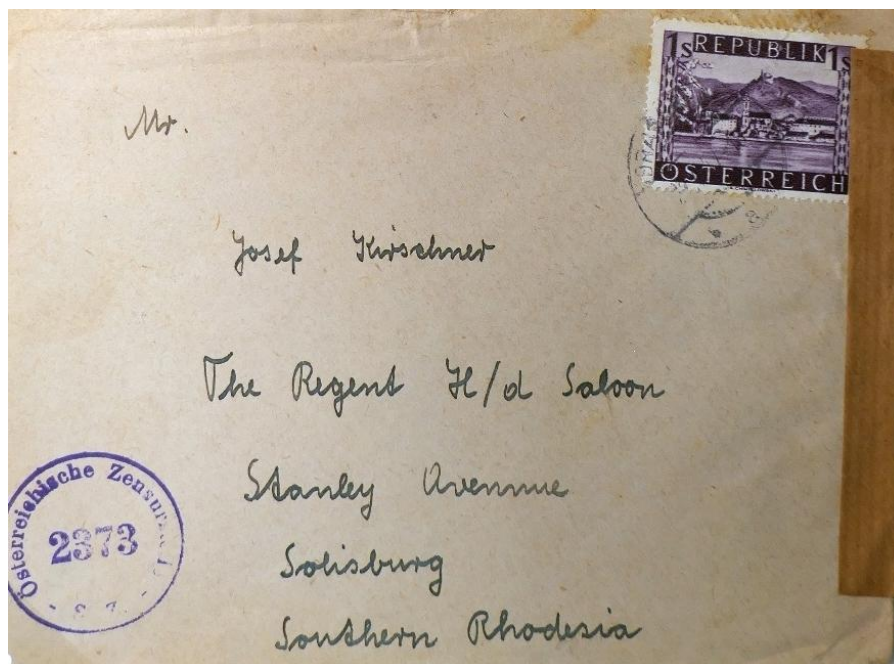 1S REPUBLIK 1S
ÖSTERREICH
Mr.
Josef Kirschner
The Regent H/d Saloon
Stanley Avennue
Solisburg
Southern Rhodesia
Österreichische
2373